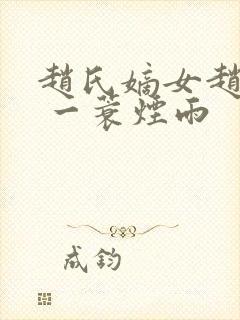 趙氏嫡女趙
一蓑煙雨
成鈞